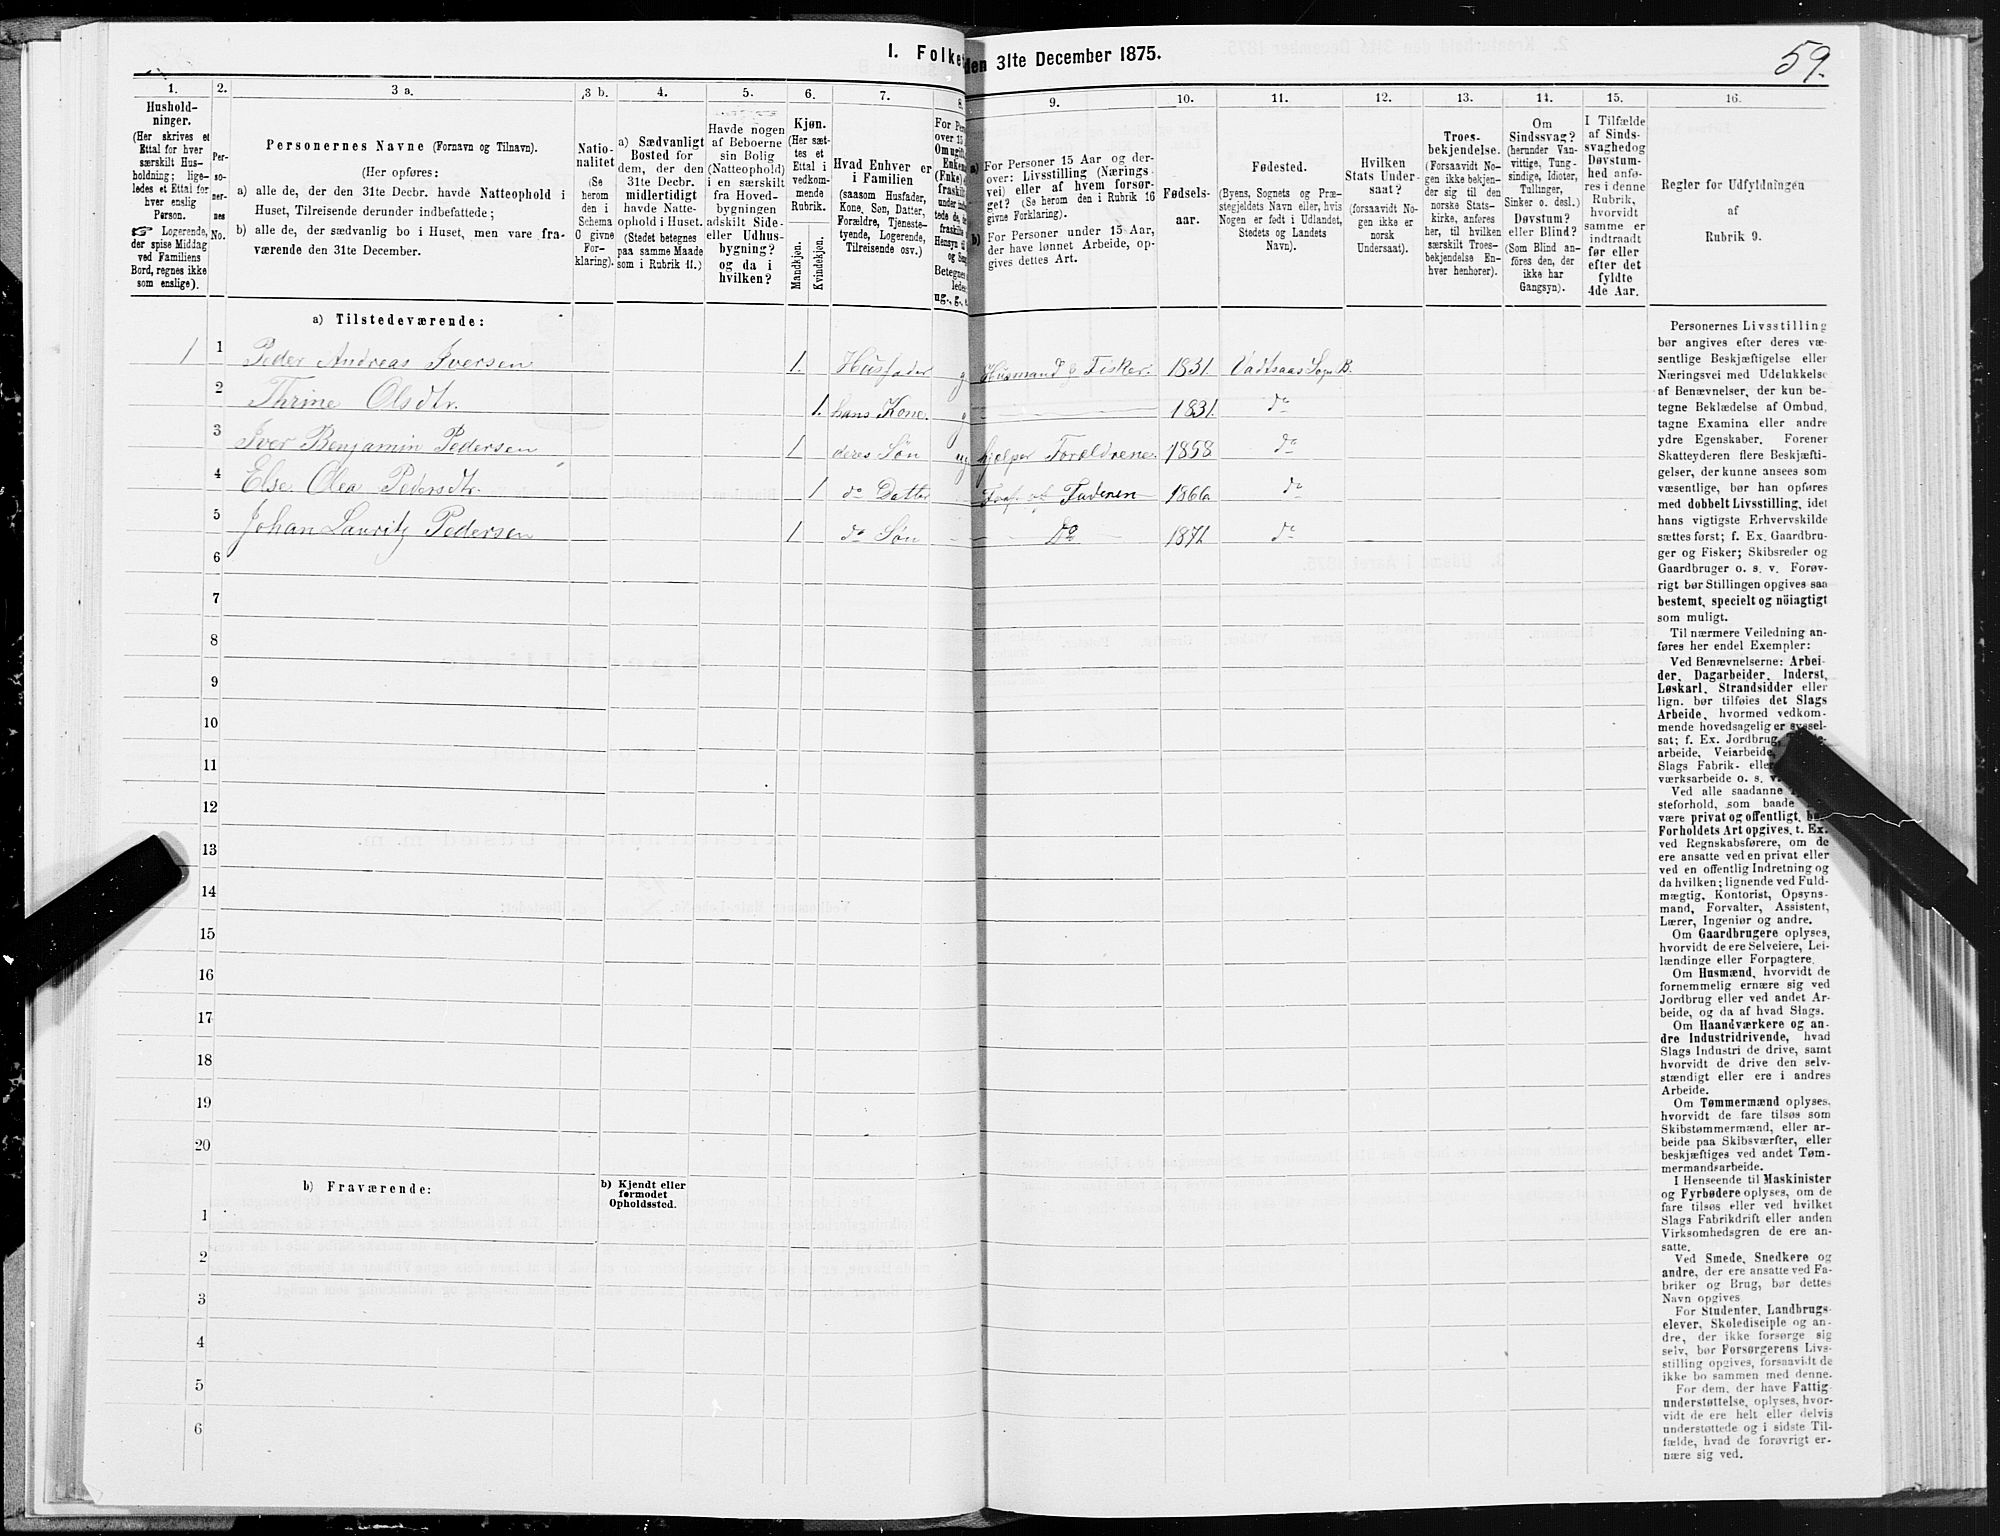 I. Folke den 31te December 1875.
59.
1. 2. 3 a. 3 b. 4. 5. 6. 7. 8. 9. 10. 11. 12. 13. 14. 15. 16.
Hushold-
ninger.
(Her skrives et
Ettal for hver
særskilt Hus-
holdning; lige-
ledes et Ettal for
hver enslig
Person.
☞ Logerende,
der spise Middag
ved Familiens
Bord, regnes ikke
som enslige).
Per-
so-
ner-
nes
No.
Personernes Navne (Fornavn og Tilnavn).
(Her opføres:
a) alle de, der den 31te Decbr. havde Natteophold i
Huset, Tilreisende derunder indbefattede;
b) alle de, der sædvanlig bo i Huset, men vare fra-
værende den 31te December.
Natio-
nalitet
(Se
herom
den i
Schema
C givne
For-
klaring).
a) Sædvanligt
Bosted for
dem, der den
31te Decbr.
midlertidigt
havde Natte-
ophold i Huset.
(Stedet betegnes
paa samme Maade
som i Rubrik 11.)
Havde nogen
af Beboerne
sin Bolig
(Natteophold)
i en særskilt
fra Hoved-
bygningen
adskilt Side-
eller Udhus-
bygning?
og da i
hvilken?
Kjøn.
(Her sæt-
tes et
Ettal i
vedkom-
mende
Rubrik.
Mandkjøn.
Kvindekjøn.
Hvad Enhver er
i Familien
(saasom Husfader,
Kone, Søn, Datter,
Forældre, Tjeneste-
tyende, Logerende,
Tilreisende osv.)
For Per
over 15
Omugift
Enkem
(Enke)
fraskilt
under indt
tede de,
fraskilte
Hensyn til
og Sen
Betegnes
ledes
ug., g.,
a) For Personer 15 Aar og der-
over: Livsstilling (Nærings-
vei) eller af hvem forsør-
get? (Se herom den i Rubrik 16
givne Forklaring).
b) For Personer under 15 Aar,
der have lønnet Arbeide, op-
gives dettes Art.
Fødsels-
aar.
Fødested.
(Byens, Sognets og Præ-
stegjeldets Navn eller, hvis
Nogen er født i Udlandet,
Stedets og Landets
Navn).
Hvilken
Stats Under-
saat?
(forsaavidt No-
gen ikke er
norsk
Undersaat).
Troes-
bekjendelse.
(Forsaavidt No-
gen ikke bekjen-
der sig til den
norske Stats-
kirke, anføres
her, til hvilken
særskilt Troes-
bekjendelse En-
hver henhorer).
Om
Sindssvag?
(herunder Van-
vittige, Tung-
sindige, Idioter,
Tullinger,
Sinker o. desl.)
Døvstum?
eller Blind?
(Som Blind an-
føres den, der
ikke har
Gangsyn).
I Tilfælde
af Sinds-
svaghedog
Døvstum-
hed anfø-
res i denne
Rubrik,
hvorvidt
samme er
indtraadt
før eller
efter det
fyldte
4de Aar.
Regler for Udfyldningen
af
Rubrik 9.
a) Tilstedeværende:
1 1 Peder Andreas Iversen 1. Husfader g Husmand & Fisker. 1831. Vadtsaas Sogn B.
2 Thrine Olsdtr. 1. hans Kone. g 1831. do
3 Iver Benjamin Pedersen 1 deres Søn ug hjælper Forældrene. 1858 do
4 Else Olea Pedersdtr. 1 do Datter - Fors. af Faderen 1866 do
5 Johan Lauritz Pedersen 1 do Søn - do 1871 do
6
7
8
9
10
11
12
13
14
15
16
17
18
19
20
b) Fraværende:
b) Kjendt eller
formodet
Opholdssted.
1
2
3
4
5
6
Personernes Livsstilling
bør angives efter deres væ-
sentlige Beskjæftigelse eller
Næringsvei med Udelukkelse
af Benævnelser, der kun be-
tegne Beklædelse af Ombud,
tagne Examina eller andre
ydre Egenskaber. Forener
Skatteyderen flere Beskjæfti-
gelser, der kunne ansees som
væsentlige, bør han opføres
med dobbelt Livsstilling, idet
hans vigtigste Erhvervskilde
sættes først; f. Ex. Gaardbru-
ger og Fisker; Skibsreder og
Gaardbruger o. s. v. Forøv-
rigt bør Stillingen opgives saa
bestemt, specielt og nöiagtigt
som muligt.
Til nærmere Veiledning an-
føres her endel Exempler:
Ved Benævnelserne: Arbei-
der, Dagarbeider, Inderst,
Løskarl, Strandsidder eller
lign. bør tilføies det Slags
Arbeide, hvormed vedkom-
mende hovedsagelig er syssel-
sat; f. Ex. Jordbrug,
arbeide, Veiarbeide,
Slags Fabrik- eller
værksarbeide o. s. v.
Ved alle saadanne
steforhold, som baade
være privat og offentligt, bør
Forholdets Art opgives, t. Ex.
ved Regnskabsførere, om de
ere ansatte ved en privat eller
ved en offentlig Indretning og
da hvilken; lignende ved Fuld-
mægtig, Kontorist, Opsyns-
mand, Forvalter, Assistent,
Lærer, Ingeniør og andre.
Om Gaardbrugere oplyses,
hvorvidt de ere Selveiere, Lei-
lændinge eller Forpagtere.
Om Husmænd, hvorvidt de
fornemmelig ernære sig ved
Jordbrug eller ved andet Ar-
beide, og da af hvad Slags.
Om Haandværkere og an-
dre Industridrivende, hvad
Slags Industri de drive, samt
hvorvidt de drive den selv-
stændigt eller ere i andres
Arbeide.
Om Tømmermænd oplyses,
hvorvidt de fare tilsøs som
Skibstømmermænd, eller ar-
beide paa Skibsværfter, eller
beskjæftiges ved andet Tøm-
mermandsarbeide.
I Henseende til Maskinister
og Fyrbødere oplyses, om de
fare tilsøs eller ved hvilket
Slags Fabrikdrift eller anden
Virksomhedsgren de ere an-
satte.
Ved Smede, Snedkere og
andre, der ere ansatte ved Fa-
briker og Brug, bør dettes
Navn opgives
For Studenter, Landbrugs-
elever, Skoledisciple og an-
dre, der ikke forsørge sig
selv, bør Forsørgerens Livs-
stilling opgives, forsaavidt de
ikke bo sammen med denne.
For dem, der have Fattig-
understøttelse, oplyses, hvor-
vidt de ere helt eller delvis
understøttede og i sidste Til-
fælde, hvad de forøvrigt er-
nære sig ved.